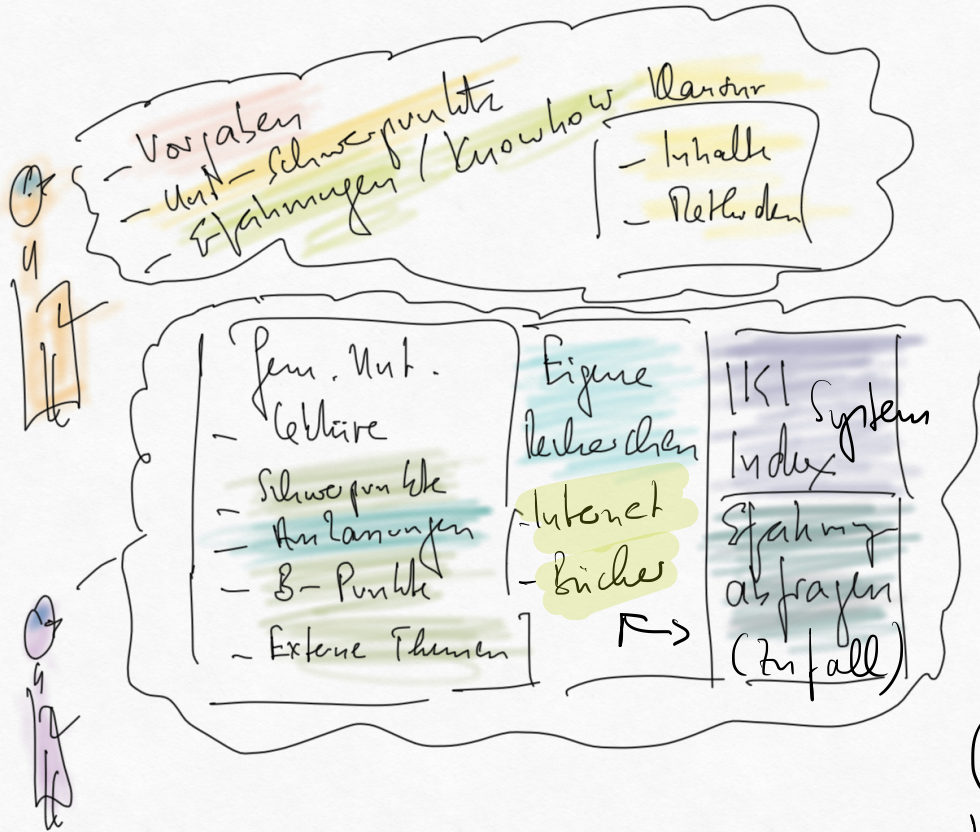 - Vorgaben
- Unt-Schwerpunkte
- Erfahrungen / Knowhow
Klausur
- Inhalte
- Methoden
Gem. Unt.
- Lektüre
- Schwerpunkte
-
- B-Punkte
- Externe Themen
Eigene
Recherchen
- Internet
- Bücher
IKI System
Index
Erfahrung
abfragen
(Zufall)